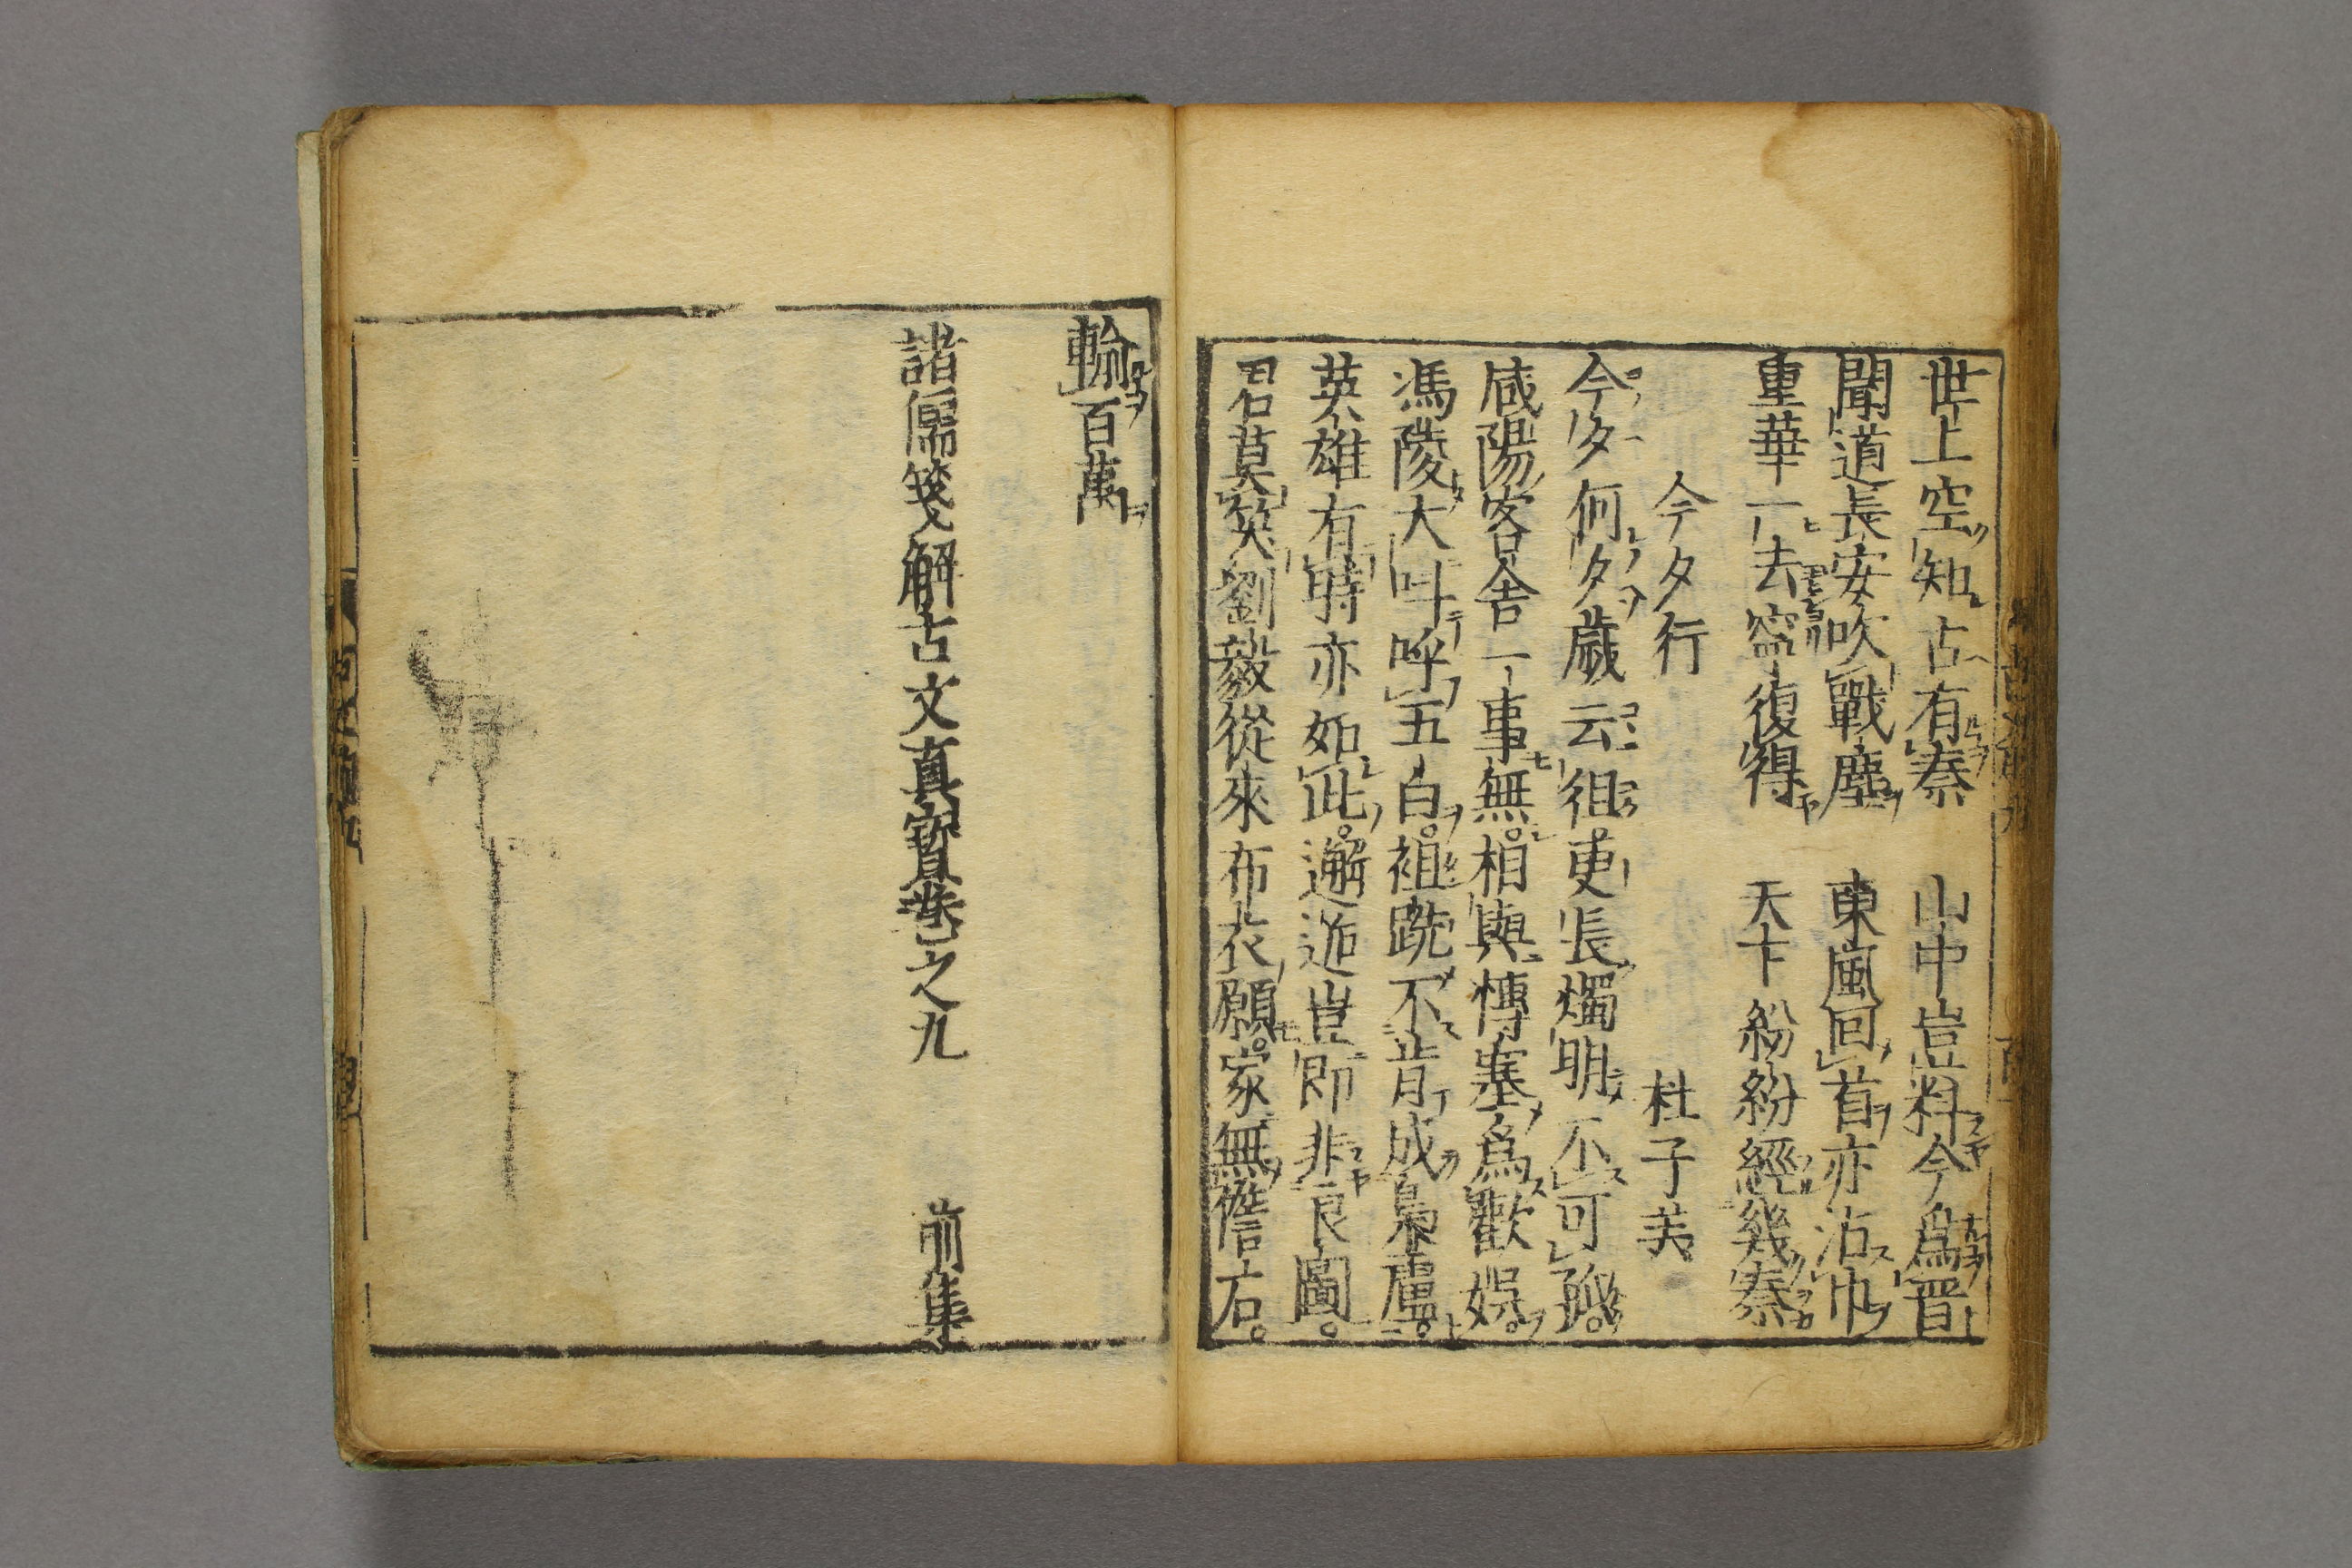 世上空知古有秦　山中豈料今爲晉
聞道長安吹戰塵　東風回首亦沾巾
重華一去寧復得　天下紛紛經幾秦
今夕行　杜子美
今夕何夕歳云徂更長燭明不可孤。
咸陽客舎一事無。相與愽塞爲歡娯。
馮陵大呌呼五白。袒跣不肯成梟盧。
英雄有時亦如此。邂逅豈即非良圖。
君莫笑劉毅從來布衣願。家無儋石。
輸百萬
諸儒箋解古文真寳巻之九　前集